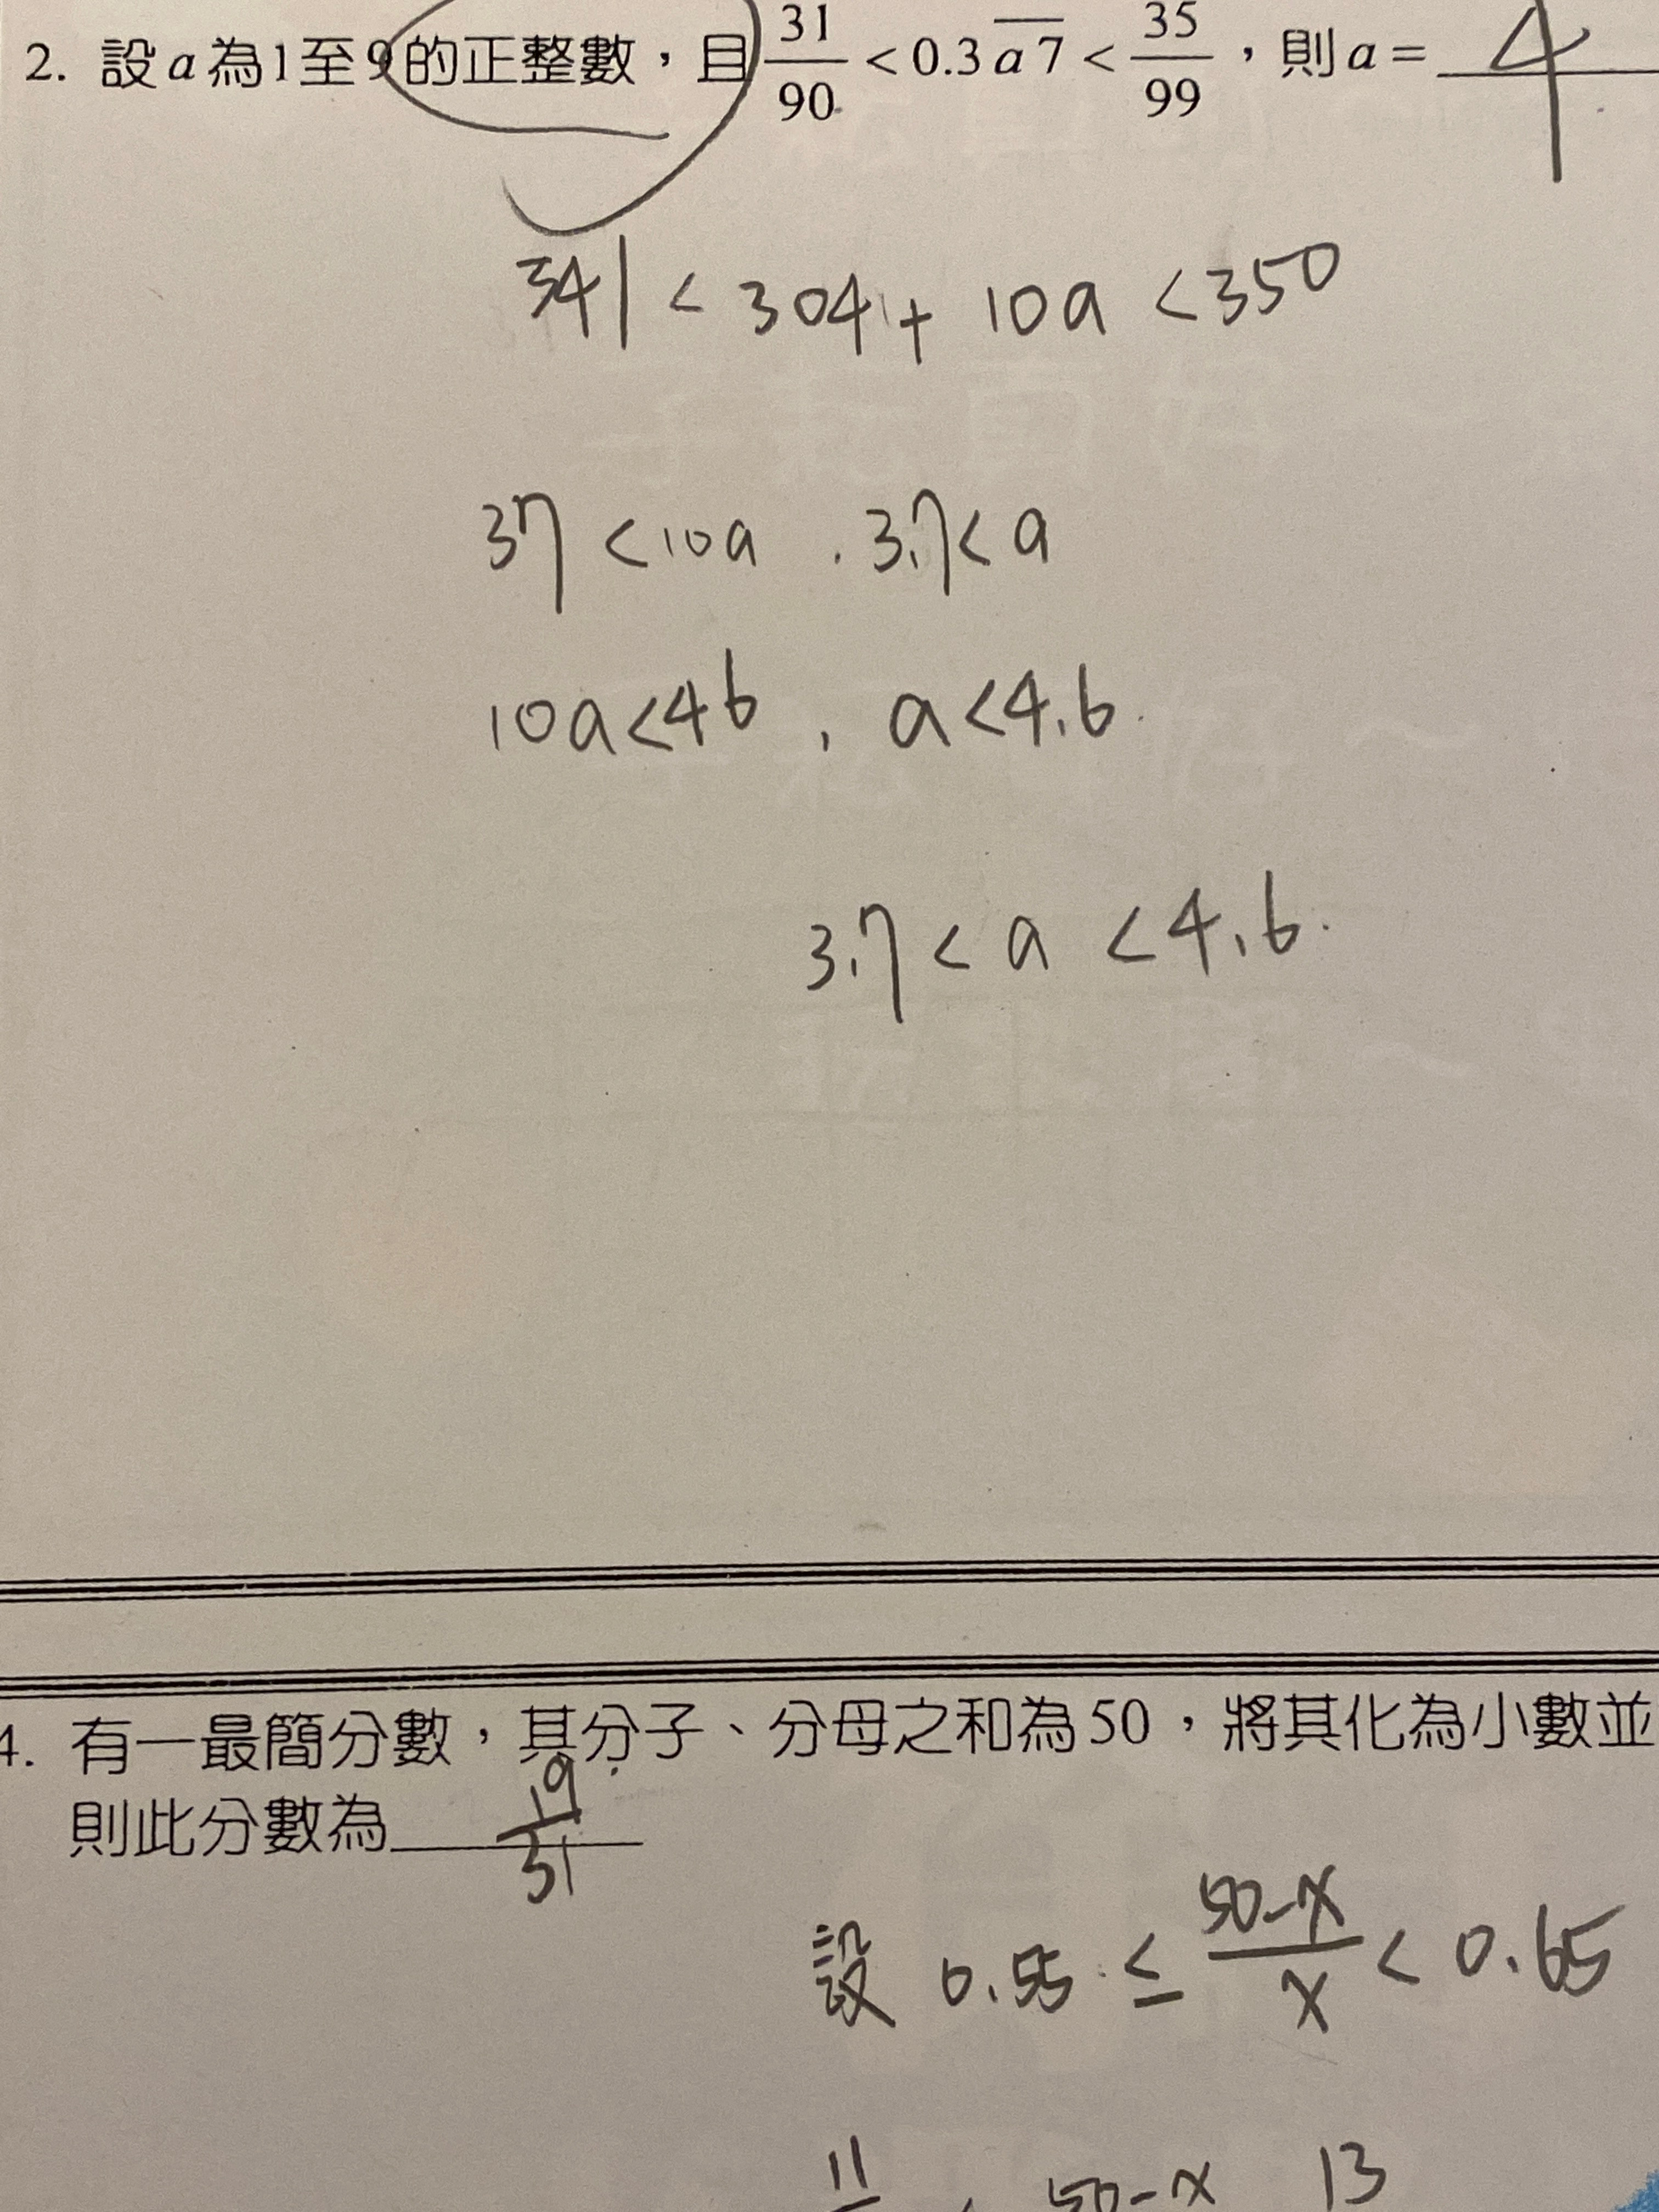 2. 設a為1至9的正整數，且 31/90 < 0.3a7̅ < 35/99，則a= 4
341 < 304 + 10a < 350
37 < 10a . 3.7 < a
10a < 46 , a < 4.6.
3.7 < a < 4.6.
4. 有一最簡分數，其分子、分母之和為50，將其化為小數並
則此分數為 19/31
設 0.55 ≤ 50-x/x < 0.65
11 < 50-x 13